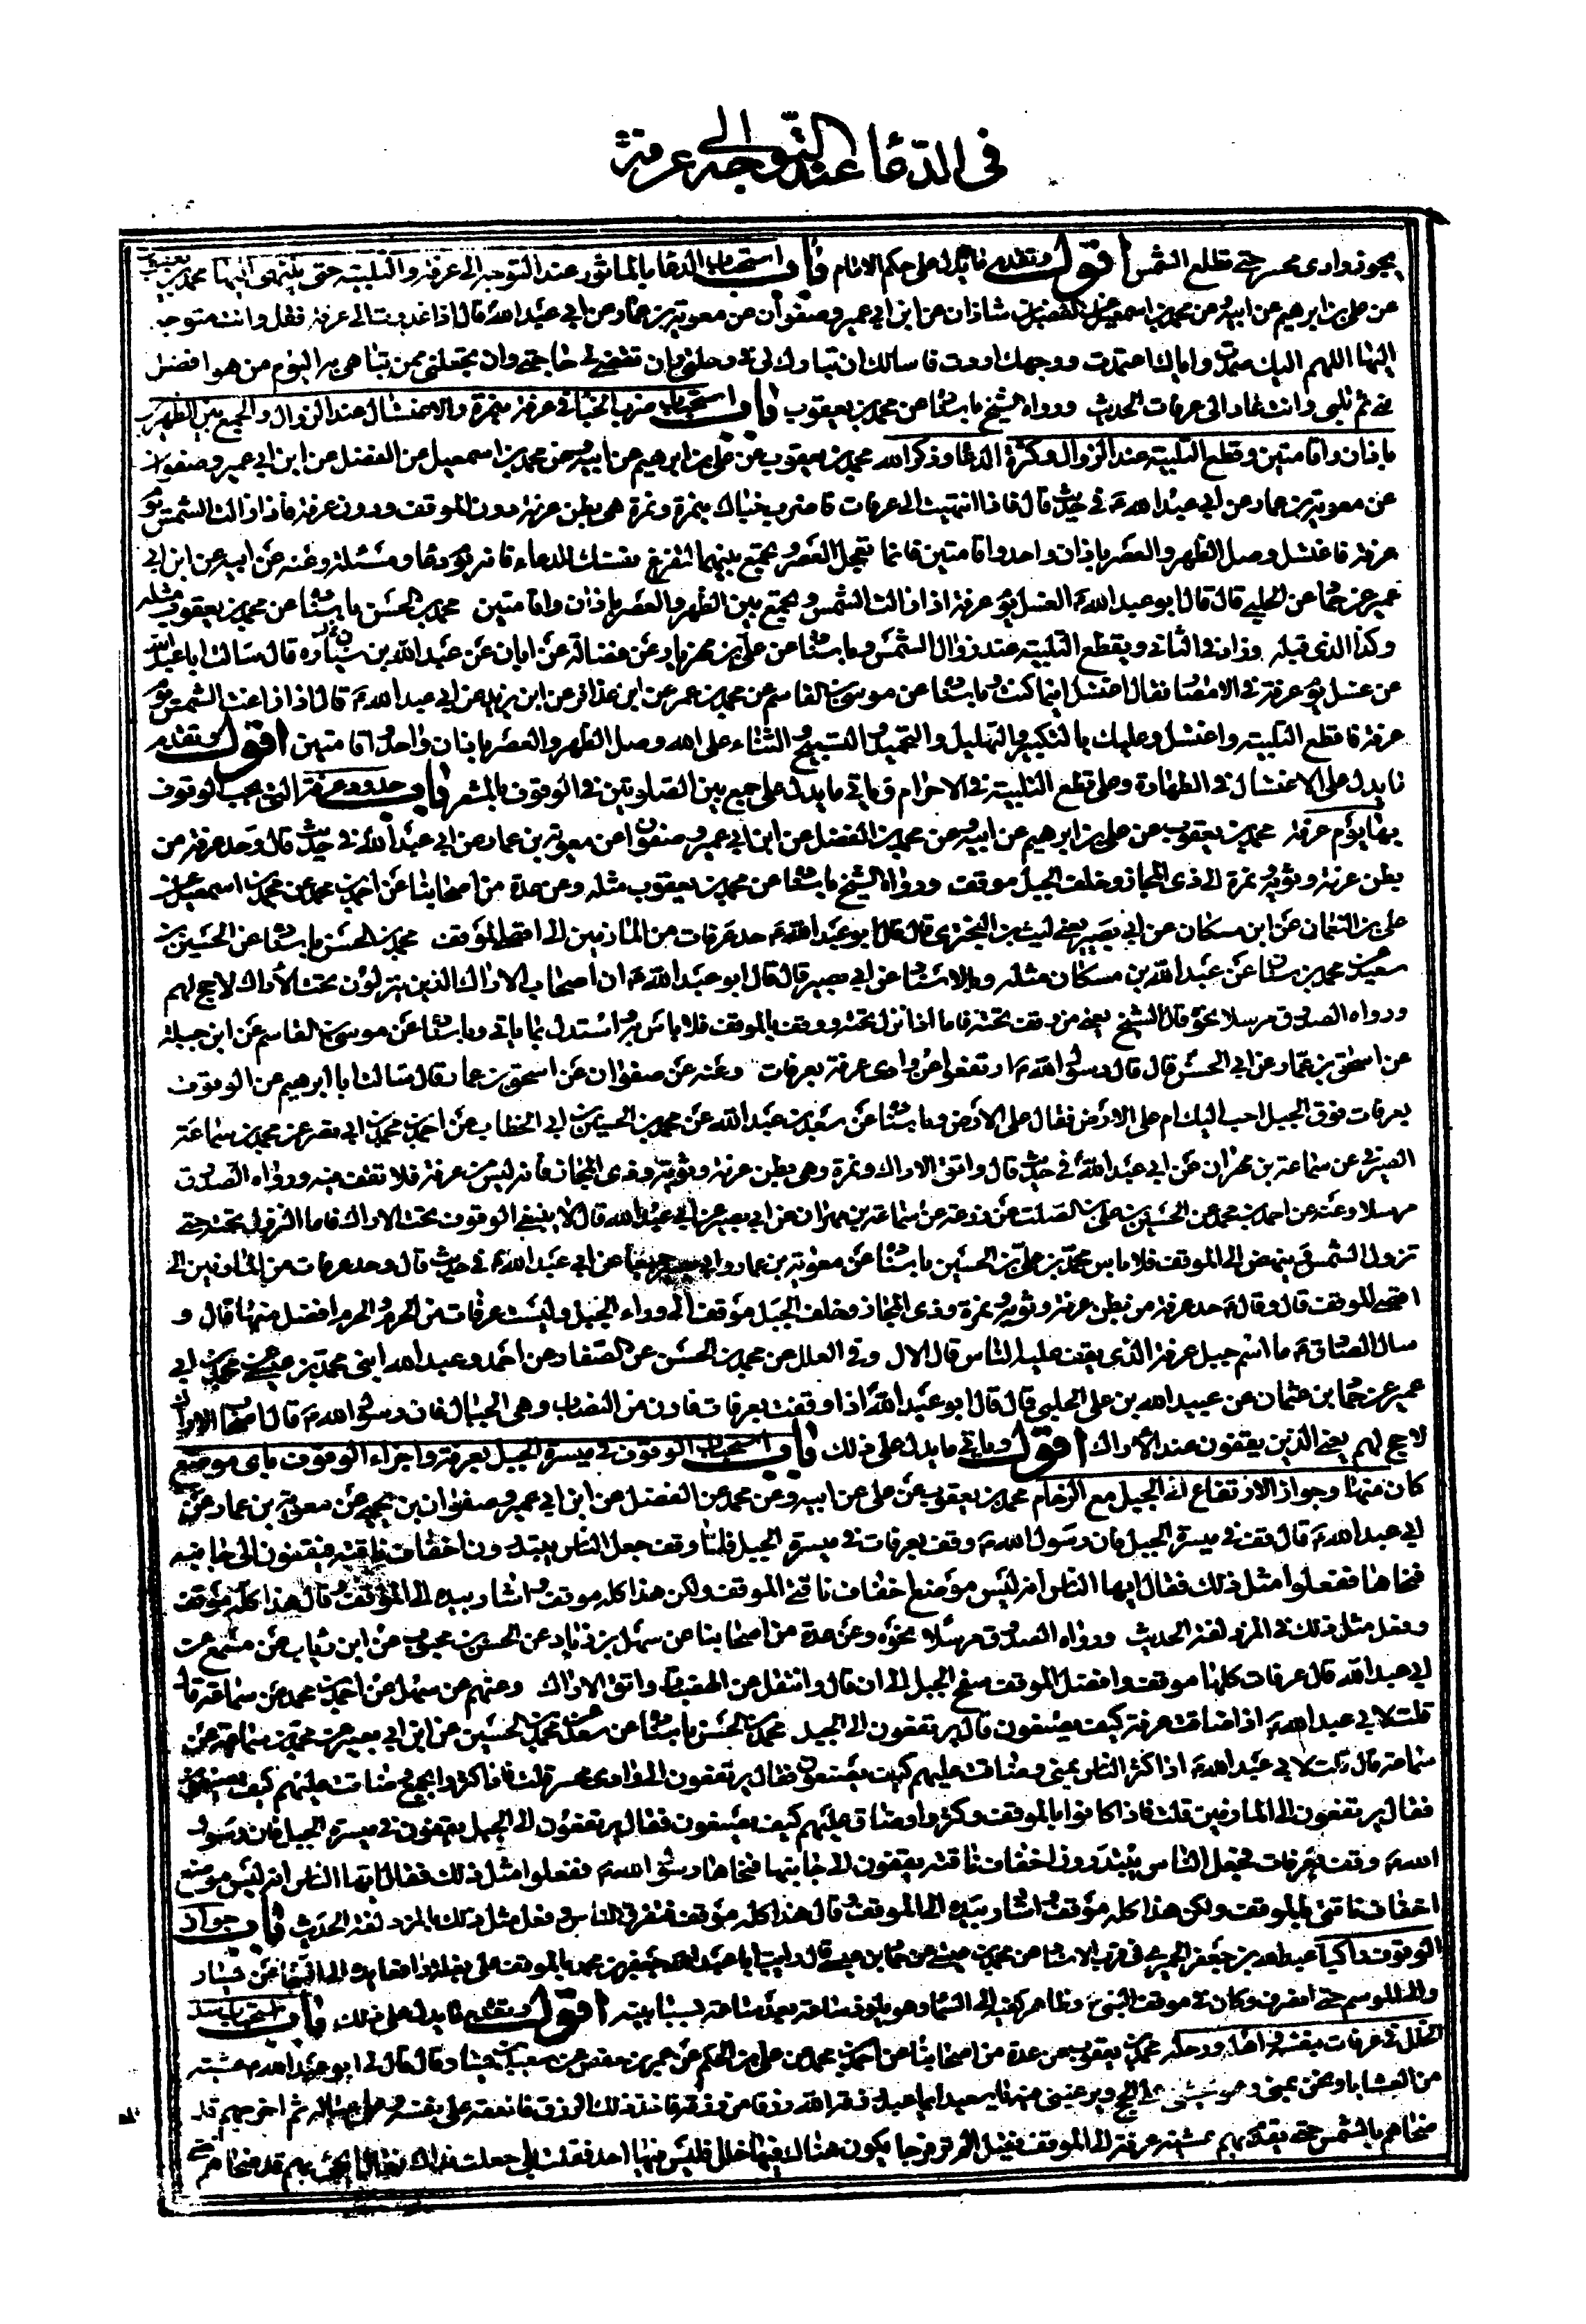 في الدعاء عند التوجه الى عرفة
يجوز وادى محسر حتى تطلع الشمس اقول وتقدم ما يدل على حكم الامام باب استحباب الدعا بالماثور عند التوجه الى عرفة والتلبية حتى ينتهى اليها محمد بن يعقوب
عن على بن ابرهيم عن ابيه وعن محمد بن اسمعيل عن الفضل بن شاذان عن ابن ابي عمير وصفوان عن معوية بن عمار عن ابي عبد الله قال اذا غدوت الى عرفة فقل وانت متوجه
اليها اللهم اليك صمدت واياك اعتمدت ووجهك اردت فاسالك ان تبارك لي في رحلتي وان تقضى لي حاجتى وان تجعلني ممن تباهى به اليوم من هو افضل
منى ثم تلبى وانت غاد الى عرفات الحديث ورواه الشيخ باسنا عن محمد بن يعقوب باب استحباب ضرب الخبا في عرفة بنمرة والاغتسال عند الزوال والجمع بين الظهرين
باذان واقامتين وقطع التلبية عند الزوال وكثرة الدعا وذكر الله محمد بن يعقوب عن على بن ابرهيم عن ابيه وعن محمد بن اسمعيل عن الفضل عن ابن ابي عمير وصفوان
عن معوية بن عمار عن ابي عبد الله ع في حديث قال فاذا انتهيت الى عرفات فاضرب خباك بنمرة ونمرة هى بطن عرنة دون الموقف ودون عرفة فاذا زالت الشمس يوم
عرفة فاغتسل وصل الظهر والعصر باذان واحد واقامتين فانما تعجل العصر وتجمع بينهما لتفرغ نفسك للدعاء فانه يوم دعا ومسئلة وعنه عن ابيه عن ابن ابي
عمير عن حما عن الحلبي قال قال ابو عبد الله ع الغسل يوم عرفة اذا زالت الشمس وتجمع بين الظهر والعصر باذان واقامتين محمد بن الحسن باسنا عن محمد بن يعقوب مثله
وكذا الذى قبله وزاد في الثاني ويقطع التلبية عند زوال الشمس وباسنا عن على بن مهزيار عن فضالة عن ابان عن عبد الله بن قال سالت ابا عبد الله
عن غسل يوم عرفة في الامصا فقال اغتسل اينما كنت وباسنا عن موسى بن القاسم عن محمد بن عمر عن ابن عذافر عن ابن يزيد عن ابي عبد الله ع قال اذا زاغت الشمس يوم
عرفة فاقطع التلبية واغتسل وعليك بالتكبير والتهليل والتحميد والتسبيح والثناء على الله وصل الظهر والعصر باذان واحد واقامتين اقول وتقدم
ما يدل على الاغتسال في الطهارة وعلى قطع التلبية في الاحرام وياتي ما يدل على جمع بين الصلوتين في الوقوف بالمشعر باب حدود عرفة التى يجب الوقوف
بها يوم عرفة محمد بن يعقوب عن على بن ابرهيم عن ابيه وعن محمد عن الفضل عن ابن ابي عمير وصفوا عن معوية بن عمار عن ابي عبد الله في حديث قال وحد عرفة من
بطن عرنة وثوية ونمرة الى ذى المجاز وخلف الجبل موقف ورواه الشيخ باسنا عن محمد بن يعقوب مثله وعن عدة من اصحابنا عن احمد بن محمد عن محمد بن اسمعيل عن
على بن النعمان عن ابن مسكان عن ابي بصير يعنى ليث بن البخترى قال قال ابو عبد الله ع حد عرفات من المازمين الى اقصى الموقف محمد بن الحسن باسنا عن الحسين بن
سعيد عن محمد بن سنا عن عبد الله بن مسكان مثله وبالاسنا عن ابي بصير قال قال ابو عبد الله ع ان اصحاب الاراك الذين ينزلون تحت الاراك لا حج لهم
ورواه الصدوق مرسلا نحوه قال الشيخ يعنى من وقف تحته فاما اذا نزل تحته ووقف بالموقف فلا باس به واستدل بما ياتي وباسنا عن موسى بن القاسم عن ابن جبلة
عن اسحق بن عمار عن ابي الحسن قال قال رسول الله ص ارتفعوا عن وادى عرفة بعرفات وعنه عن صفوان عن اسحق بن عمار قال سالت ابا ابرهيم عن الوقوف
بعرفات فوق الجبل احب اليك ام على الارض فقال على الارض وباسنا عن سعد بن عبد الله عن محمد بن الحسين بن ابي الخطاب عن احمد بن محمد بن ابي نصر عن محمد بن سماعة
الصيرفى عن سماعة بن مهران عن ابي عبد الله في حديث قال واتق الاراك ونمرة وهى بطن عرنة وثوية وذى المجاز فانه ليس من عرفة فلا تقف فيه ورواه الصدوق
مرسلا وعنه عن احمد بن محمد عن الحسين عن على بن الصلت عن زرعة عن سماعة بن مهران عن ابي بصير عن ابي عبد الله قال لا ينبغى الوقوف تحت الاراك فاما النزول تحته حتى
تزول الشمس وينهض الى الموقف فلا باس محمد بن على بن الحسين باسنا عن معوية بن عمار وابي بصير جميعا عن ابي عبد الله ع في حديث قال وحد عرفات من المازمين الى
اقصى الموقف قال وقال ع حد عرفة من بطن عرنة وثوية ونمرة وذى المجاز وخلف الجبل موقف الى وراء الجبل وليست عرفات من الحرم والحرم افضل منها قال و
سال الصادق ع ما اسم جبل عرفة الذى يقف عليه الناس قال الال وفى العلل عن محمد بن الحسن عن الصفار عن احمد وعبد الله ابنى محمد بن عيسى عن محمد بن ابي
عمير عن حما بن عثمان عن عبيد الله بن على الحلبى قال قال ابو عبد الله اذا وقفت بعرفات فادن من الهضاب وهى الجبال فان رسول الله ص قال اصحاب الاراك
لا حج لهم يعنى الذين يقفون عند الاراك اقول وياتي ما يدل على ذلك باب استحباب الوقوف في ميسرة الجبل بعرفة واجزاء الوقوف باى موضع
كان منها وجواز الارتفاع الى الجبل مع الزحام محمد بن يعقوب عن على عن ابيه وعن محمد عن الفضل عن ابن ابي عمير وصفوان بن يحيى عن معوية بن عمار عن
ابي عبد الله ع قال قف في ميسرة الجبل فان رسول الله ص وقف بعرفات في ميسرة الجبل فلما وقف جعل الناس يبتدرون اخفاف ناقته فيقفون الى جانبه
فنحاها ففعلوا مثل ذلك فقال ايها الناس انه ليس موضع اخفاف ناقتى الموقف ولكن هذا كله موقف واشار بيده الى الموقف وقال هذا كله موقف
وفعل مثل ذلك في المزدلفة الحديث ورواه الصدوق مرسلا نحوه وعن عدة من اصحابنا عن سهل بن زياد عن الحسن بن محبوب عن ابن رئاب عن مسمع عن
ابي عبد الله قال عرفات كلها موقف وافضل الموقف سفح الجبل الى ان قال وانتقل عن الهضاب واتق الاراك وعنهم عن سهل عن احمد بن محمد عن سماعة قال
قلت لابي عبد الله ع اذا ضاقت عرفة كيف يصنعون قال يرتفعون الى الجبل محمد بن الحسن باسنا عن سعد عن محمد بن الحسين عن ابن ابي نصير عن محمد بن سماعة عن
سماعة قال قلت لابي عبد الله ع اذا كثر الناس بمنى وضاقت عليهم كيف يصنعون فقال يرتفعون الى وادى محسر قلت فاذا كثروا بجمع وضاقت عليهم كيف يصنعون
فقال يرتفعون الى المازمين قلت فاذا كانوا بالموقف وكثروا وضاق عليهم كيف يصنعون فقال يرتفعون الى الجبل وقف في ميسرة الجبل فان رسول
الله ص وقف بعرفات فجعل الناس يبتدرون اخفاف ناقته يقفون الى جانبها فنحاها رسول الله ص ففعلوا مثل ذلك فقال ايها الناس انه ليس موضع
اخفاف ناقتى بالموقف ولكن هذا كله موقف واشار بيده الى الموقف وقال هذا كله موقف فتفرق الناس وفعل مثل ذلك بالمزدلفة الحديث باب جواز
الوقوف راكبا عبد الله بن جعفر الحميرى في قرب الاسنا عن محمد بن عيسى عن حما بن عيسى قال رايت ابا عبد الله جعفر بن محمد بالموقف على بغلة رافعا يده الى السما عن يسار
والى الموسم حتى انصرف وكان في موقف النبى ص وظاهر كفيه الى السما وهو يلوذ ساعة بعد ساعة بسبابتيه اقول وتقدم ما يدل على ذلك باب استحباب سد
الخلل في عرفات بنفسه واهله ورحله محمد بن يعقوب عن عدة من اصحابنا عن احمد بن محمد عن على بن الحكم عن عمر بن حفص عن سعيد بن يسار قال قال لي ابو عبد الله ع عشية
من العشايا ونحن بمنى وهو يحثنى على الحج ويرغبنى فيه يا سعيد ايما عبد رزقه الله رزقا من رزقه فاخذ ذلك الرزق فانفقه على نفسه وعلى عياله ثم اخرجهم قد
ضحاهم بالشمس حتى يقدم بهم عشية عرفة الى الموقف فيقيل الم تر فرجا يكون هناك فيها خلل فليس فيها احد فقلت بلى جعلت فداك فقال يجئ بهم قد ضحاهم حتى